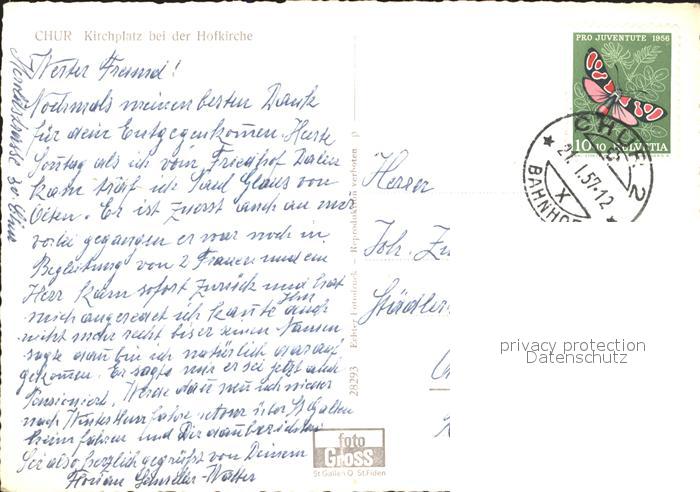 CHUR Kirchplatz bei der Hofkirche
Werter Freund!
Nochmals meinen besten Dank
für dein Entgegenkommen. Heute
Sonntag als ich vom Friedhof
kam traf ich Paul Glaus von
Olten. Er ist zuerst auch an mir
vorbei gegangen er war noch in
Begleitung von 2 Frauen und ein
Herr kam sofort zurück und hat
mich angeredet ich kante Ihn auch
nicht mehr recht bis er seinen Namen
sagte dan bin ich natürlich darauf
gekommen. Er sagte mir er sei jetzt auch
Pensioniert. Werde dan
nach Winterthur fahre retour über St Gallen
heim fahren und Dir dan berichten
Sei also herzlich gegrüsst von Deinem
Florian
28293 Echter Fotodruck - Reproduktion verboten
foto
GROSS
St. Gallen O St. Fiden
PRO JUVENTUTE 1956
10+10 HELVETIA
CHUR 2
21.I.57-12
X
BAHNHO
Herrn
Joh. Zu
Städtler
privacy protection
Datenschutz